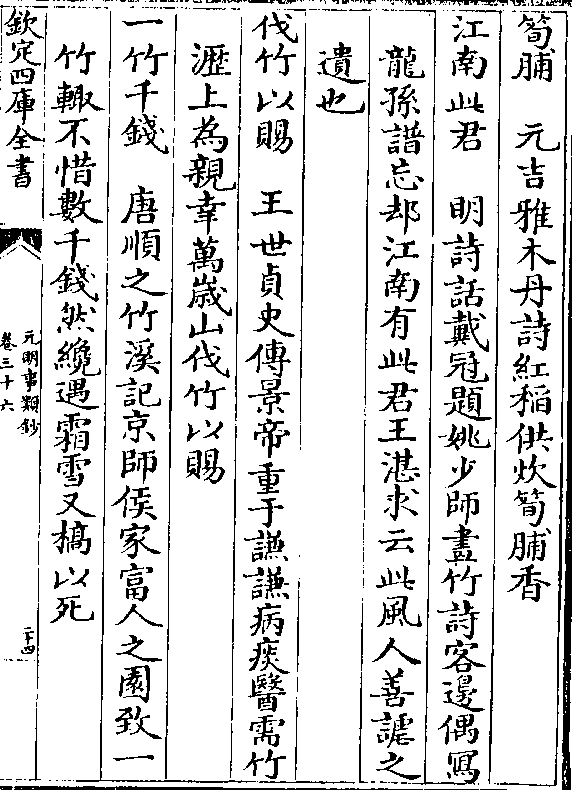 筍脯　元吉雅木丹詩紅稲供炊筍脯香
江南此君　明詩話戴冠題姚少師畫竹詩客邊偶寫
龍孫譜忘却江南有此君王湛求云此風人善謔之
遺也
伐竹以賜　王世貞史傳景帝重于謙謙病痰醫需竹
瀝上為親幸萬歳山伐竹以賜
一竹千錢　唐順之竹溪記京師侯家富人之園致一
竹輙不惜數千錢然纔遇霜雪又槁以死
欽定四庫全書
元明事類鈔
卷三十六
二十四